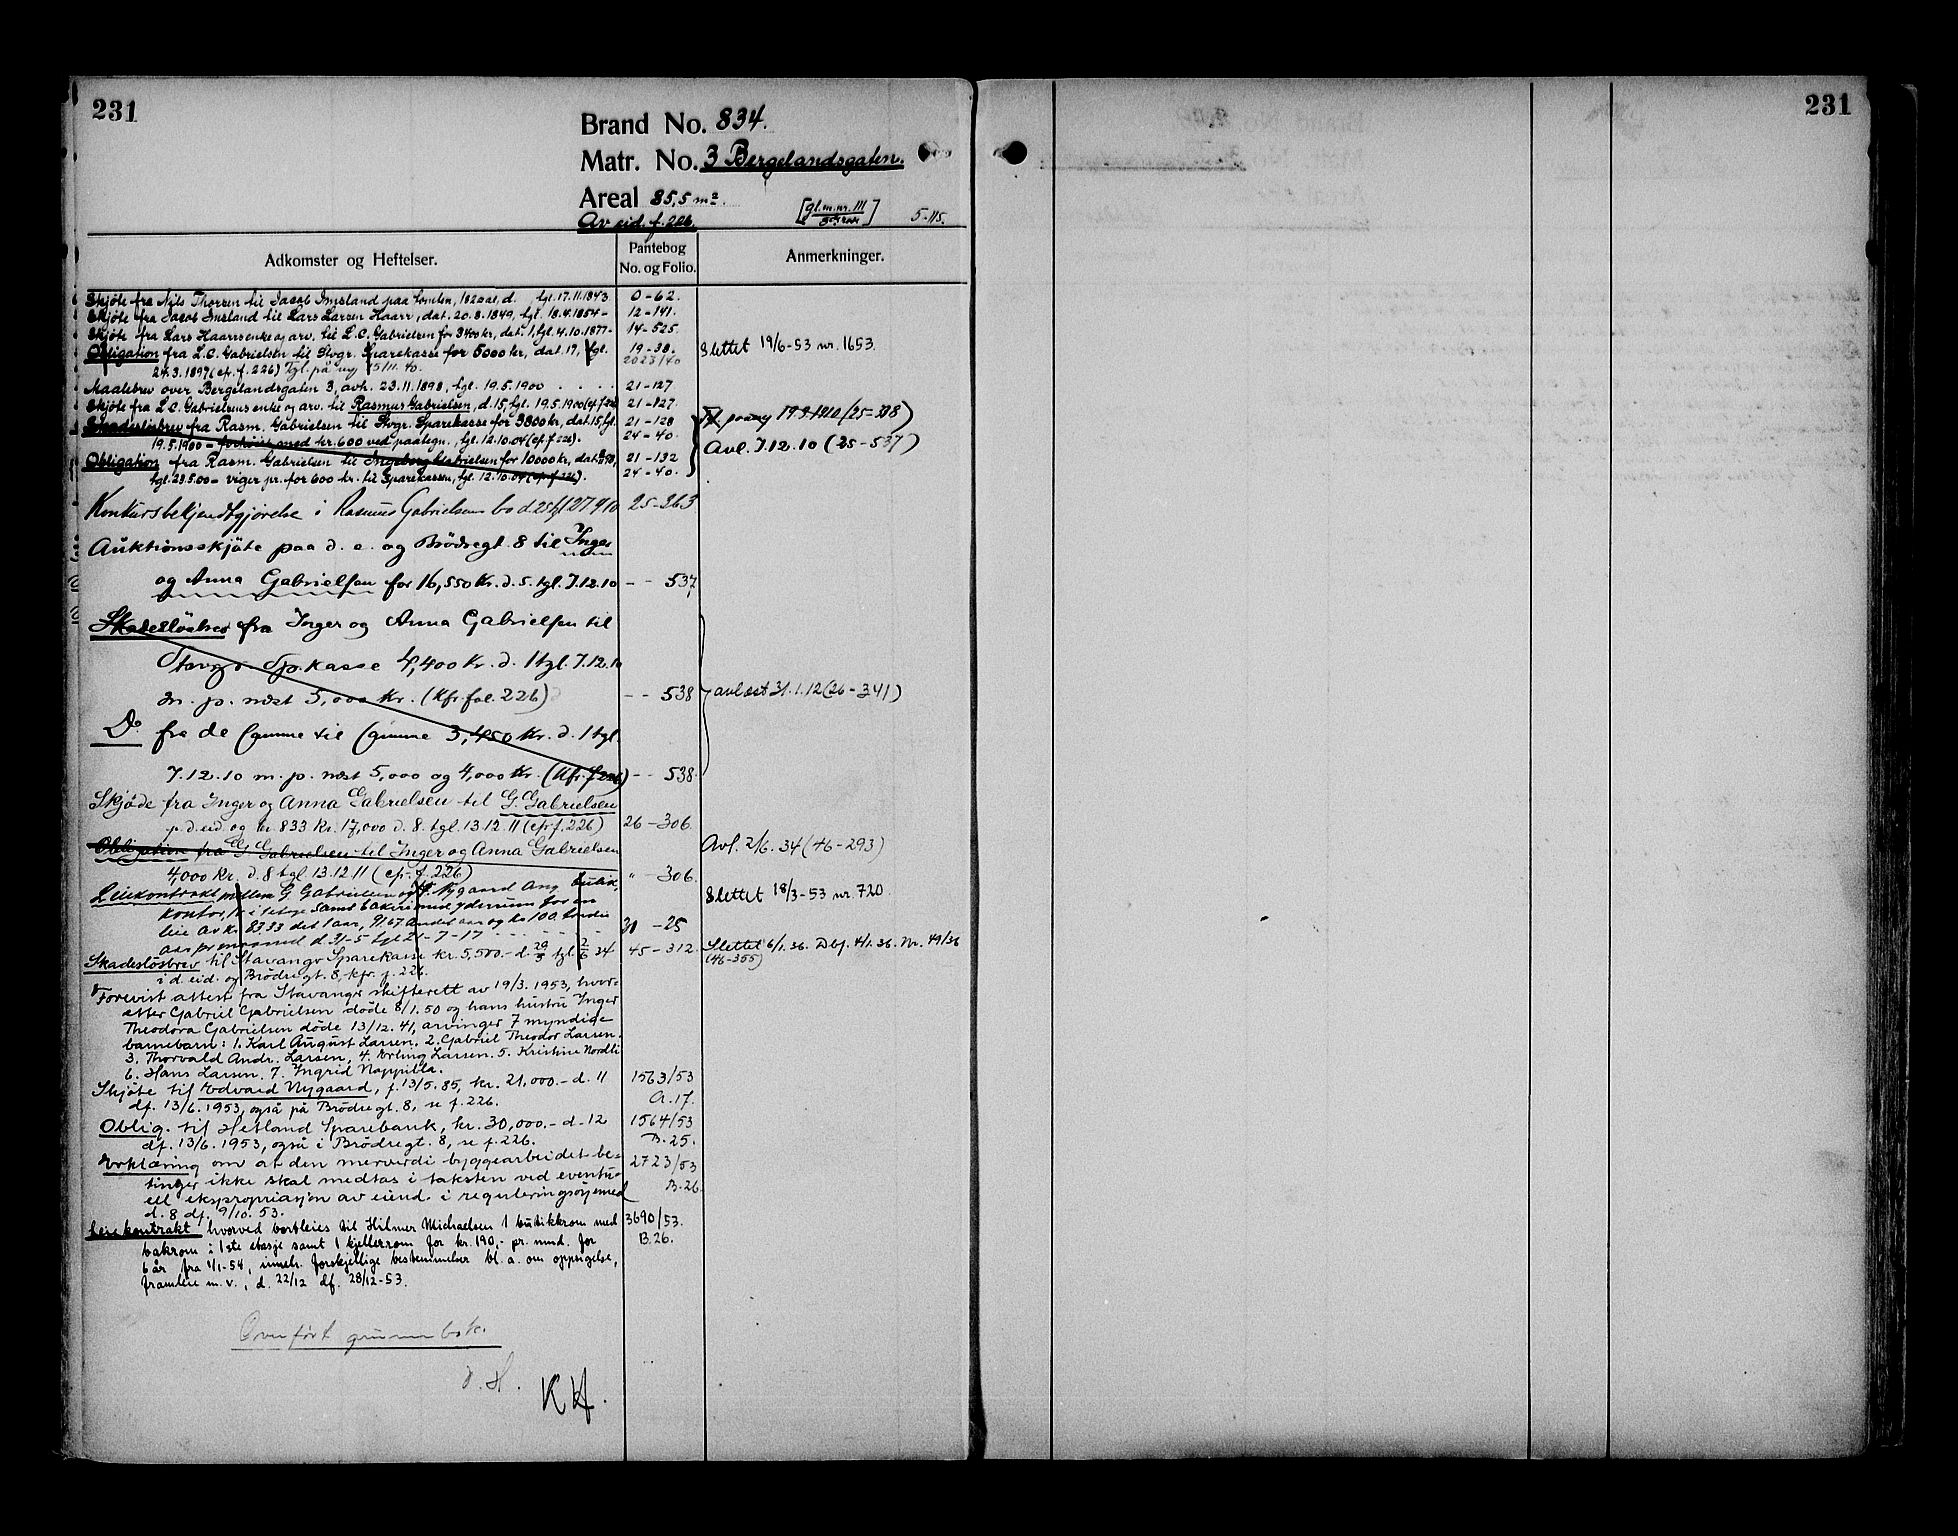 231
231
Brand No. 834.
Matr. No. 3 Bergelandsgaten.
Areal 85,5 m².
Av eid. f. 226.
[gl.m.nr. 111] 5-115.
Adkomster og Heftelser.
Pantebog No. og Folio.
Anmerkninger.
Skjøte fra Nils Thorsen til Jacob Imsland paa tomten, d. tgl. 17.11.1843 0-62.
Skjøte fra Jacob Imsland til Lars Larsen Haarr, dat. 20.8.1849, tgl. 18.4.1854- 12-141.
Skjøte fra Lars Haarrs enke og arv. til L.C. Gabrielsen for 3400 kr, dat. 1, tgl. 4.10.1877- 14-525.
Obligation fra L.C. Gabrielsen til Stvgr. Sparekasse for 5000 kr, dat. 17, tgl. 19-38. Slettet 19/6-53 nr. 1653.
24.3.1897 (cf. f. 226) Tgl. på ny 15/11.40. 2023/40
Maalebrev over Bergelandsgaten 3, avh. 23.11.1898, tgl. 19.5.1900 . . . . 21-127
Skjøte fra L.C. Gabrielsens enke og arv. til Rasmus Gabrielsen, d. 15, tgl. 19.5.1900 (cf. f. 226) 21-127
Skadesløsbrev fra Rasm. Gabrielsen til Stvgr. Sparekasse for 3800 kr, dat. 15, tgl. 21-128 Tgl. paany 19.9.1910 (25-308)
19.5.1900 - forhøiet med kr. 600 ved paategn., tgl. 12.10.04 (cf. f. 226). 24-40. Avl. 7.12.10 (25-537)
Obligation fra Rasm. Gabrielsen til Ingeborg Gabrielsen for 10000 kr, dat. 21-132
tgl. 29.5.00 - viger pr. for 600 kr. til Sparekassen, tgl. 12.10.04 (cf. f. 226). 24-40.
Konkursbekjendtgjørelse i Rasmus Gabrielsens bo d. 25 tgl 27 9 10 25-263
Auktionsskjøte paa d. e. og Brødregt. 8 til Inger
og Anna Gabrielsen for 16,550 Kr. d. 5. tgl. 7.12.10 - - 537
Skadesløsbrev fra Inger og Anna Gabrielsen til
Stavgr. Sp.kasse 4,400 Kr. d. 1 tgl. 7.12.10
m. p. næst 5,000 Kr. (Kfr. fol. 226) - - 538 avlæst 31.1.12 (26-341)
Do. fra de samme til samme 3,450 Kr. d. 1 tgl.
7.12.10 m. p. næst 5,000 og 4,000 Kr. (Kfr. f. 226) - - 538.
Skjøde fra Inger og Anna Gabrielsen til G. Gabrielsen
p. d. eid. og br. 833 Kr. 17,000 d. 8. tgl. 13.12.11 (cfr. f. 226) 26-306.
Obligation fra G. Gabrielsen til Inger og Anna Gabrielsen Avl. 2/6. 34 (46-293)
4,000 Kr. d. 8 tgl. 13.12.11 (cfr. f. 226) " - 306.
Leiekontrakt mellem G Gabrielsen og Nygaard ang. butik, Slettet 18/3-53 nr. 720.
kontor, i 1 etage samt bakeri med yderrum for en
leie av kr 83.33 det 1 aar, 91.67 andet aar og kr 100. tredie
aar pr maaned d 31-5 tgl 21-7-17 30-25
Skadesløsbrev til Stavanger Sparekasse kr. 5,500.- d. 29/5 tgl. 2/6 34 45-312. Slettet 6/1.36. Dbf. 4/1.36. Nr. 49/36
i d. eid. og Brødregt. 8, kfr. f. 226. (46-355)
Forevist attest fra Stavanger skifterett av 19/3. 1953, hvor-
etter Gabriel Gabrielsen døde 8/1.50 og hans hustru Inger
Theodora Gabrielsen døde 13/12.41, arvinger 7 myndige
barnebarn: 1. Karl August Larsen. 2. Gabriel Theodor Larsen.
3. Thorvald Andr. Larsen, 4. Erling Larsen. 5. Kristine Nordli
6. Hans Larsen. 7. Ingrid
Skjøte til Edvard Nygaard, f. 13/5.85, kr. 21,000.- d. 11 1563/53
df. 13/6.1953, også på Brødregt. 8, se f. 226. A.17.
Oblig. til Hetland Sparebank, kr. 30,000.- d-12 1564/53
df. 13/6.1953, også i Brødregt. 8, se f. 226. B.25.
Erklæring om at den merverdi byggearbeidet be- 2723/53
tinger ikke skal medtas i taksten ved eventu-
ell ekspropriasjon av eiend. i reguleringsøyemed B.26.
d. 8 df. 9/10.53.
Leiekontrakt hvorved bortleies til Hilmer Michaelsen 1 butikkrom med 3690/53.
bakrom i 1ste etasje samt 1 kjellerrom for kr. 190,- pr. mnd. for B.26.
6 år fra 1/1-54, inneh. forskjellige bestemmelser bl. a. om oppsigelse,
framleie m.v., d. 22/12 df. 28/12-53.
Overført grunnbok.
KH.